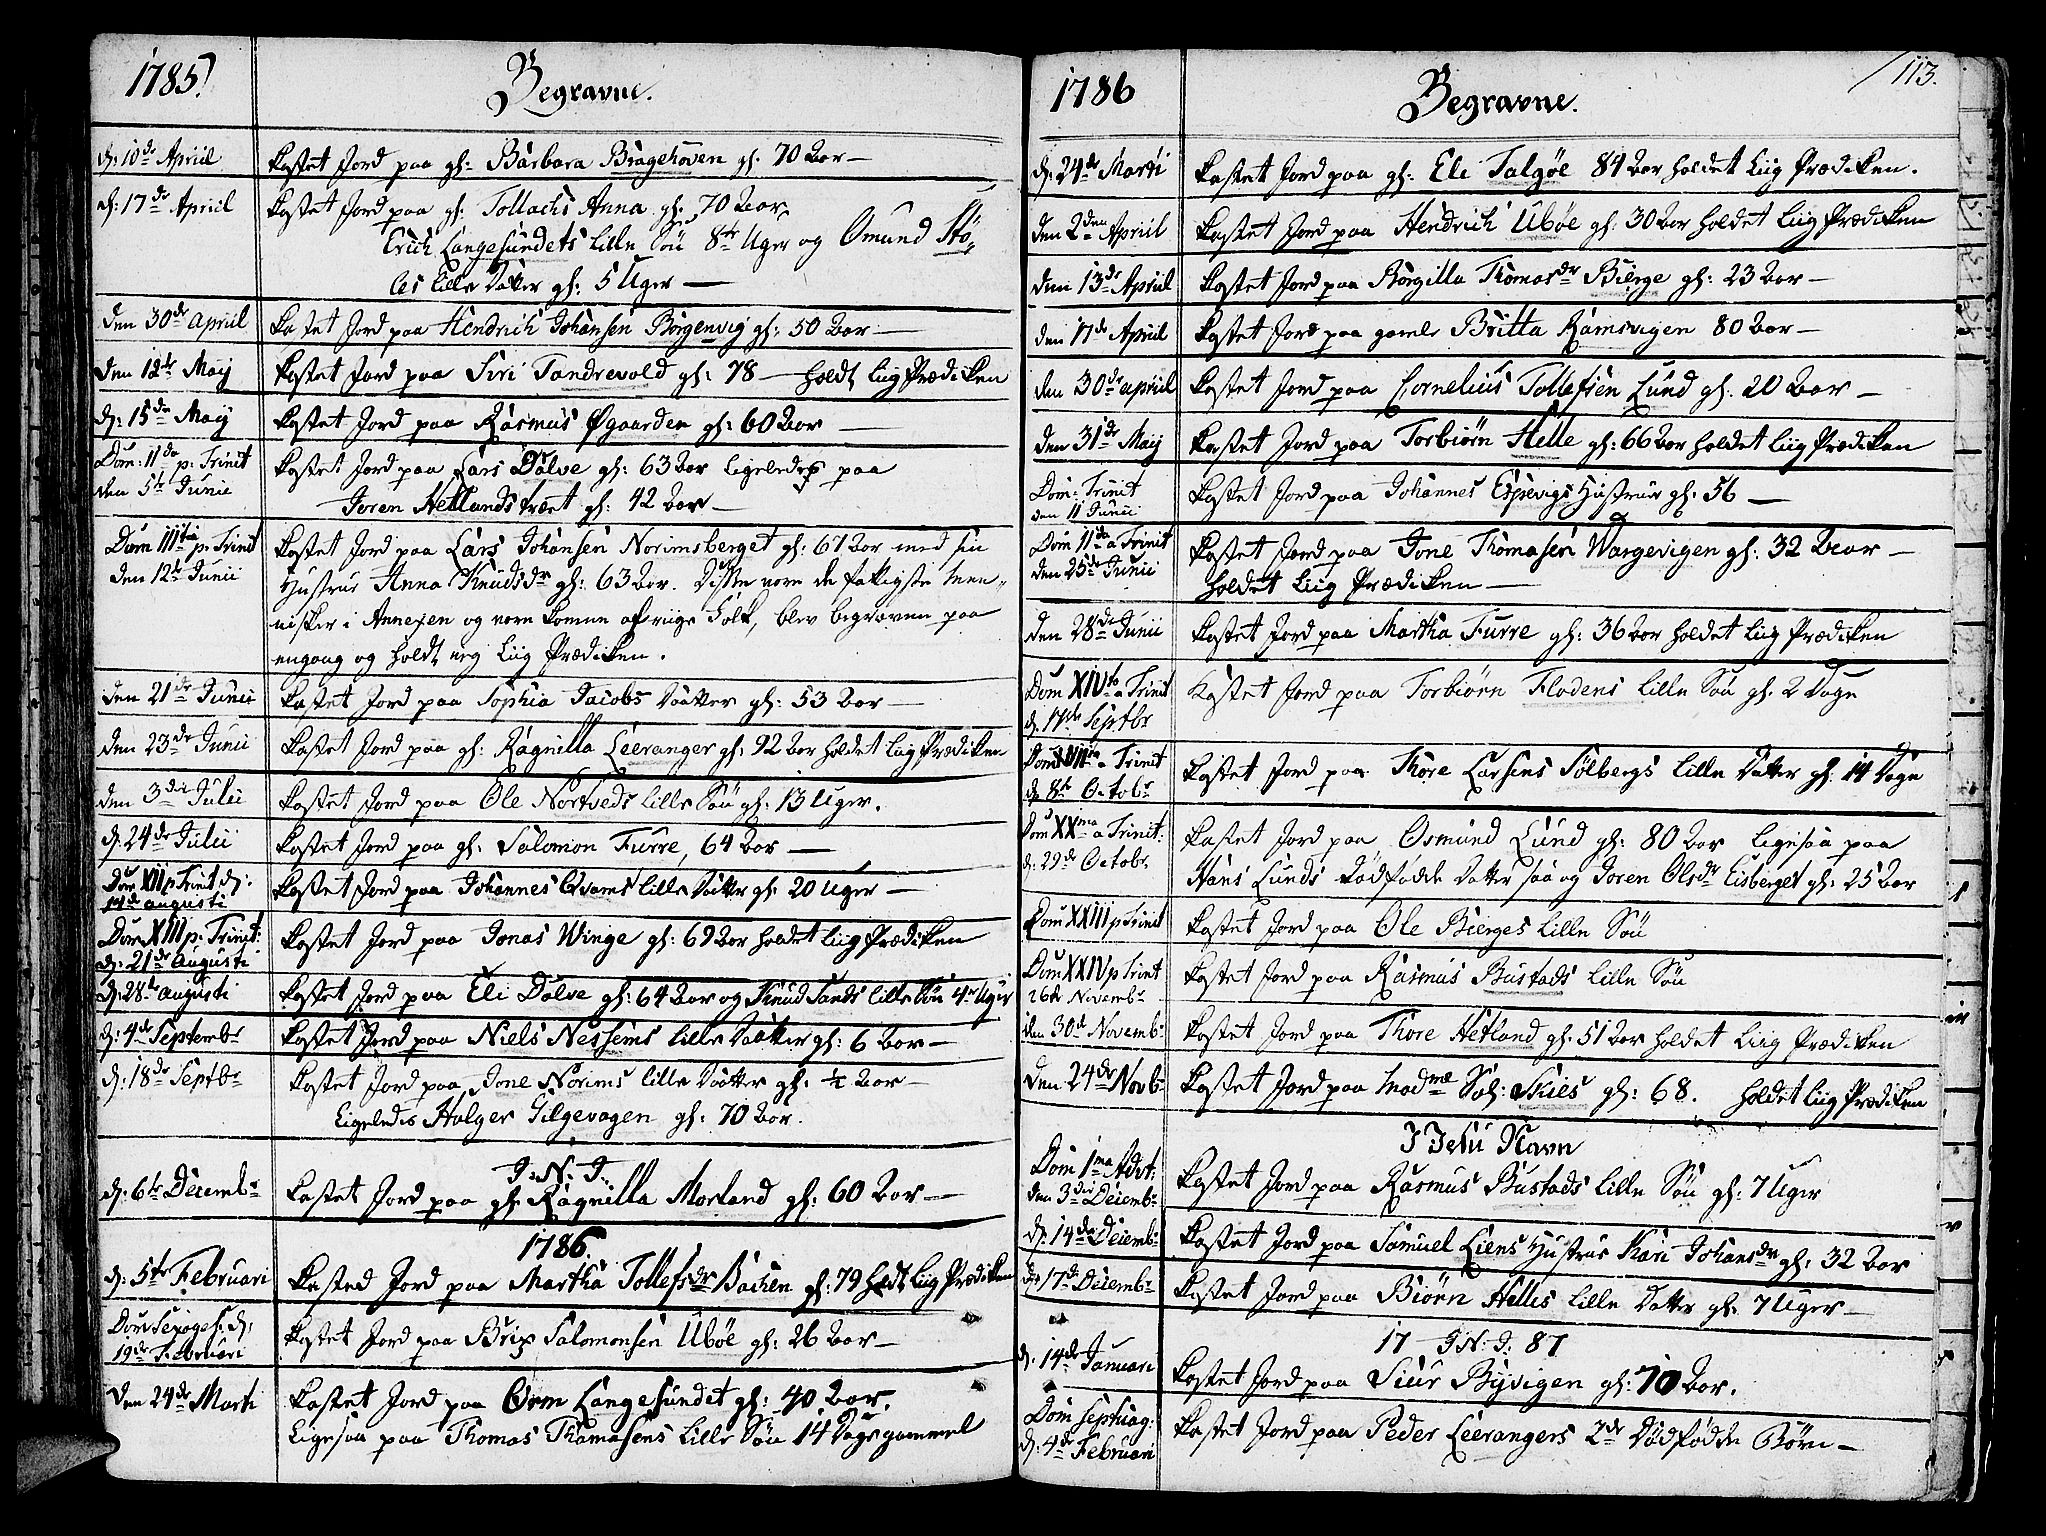 1785.
Begravne.
d: 10de Apriil kastet Jord paa gl: Barbara Bragehoven gl: 70 Aar —
d: 17de Apriil kastet Jord paa gl: Tollachs Anna gl: 70 Aar
Erich Langesundets lille Søn 8te Uger og Omund Stø,
les lille Datter gl: 5 Uger —
den 30de Apriil kastet Jord paa Hendrich Johansen Borgenvig gl: 50 Aar —
den 12te Maij kastet Jord paa Siri Tandrevold gl: 78 — holdt Liig Prædiken
d: 15de Maij kastet Jord paa Rasmus Øgaarden gl: 60 Aar —
Dom: 11da p: Trinit
den 5te Junii kastet Jord paa Lars Dølve gl: 63 Aar ligeledes paa
Joren Hetlandstræet gl: 42 Aar —
Dom IIItia p: Trinit kastet Jord paa Lars Johansen Norimsberget gl: 67 Aar med sin
den 12te Junii Hustrue Anna Knudsdr gl: 63 Aar. Disse vare de fattigste Men,
nisker i Annexen og vare komne af riige Folk, blev begraven paa
engang og holdt ieg Liig Prædiken.
den 21de Junii kastet Jord paa Sophia Jacobs Daatter gl: 53 Aar —
den 23de Junii kastet Jord paa gl: Ragnilla Leeranger gl: 92 Aar holdet Liig Prædiken
den 3die Julii kastet Jord paa Ole Nortveds lille Søn gl: 13 Uger.
d: 24de Julii kastet Jord paa gl: Salomon Furre, 64 Aar —
Dom XII p: Trinit d:
14de Augusti kastet Jord paa Johannes Qvams lille Datter gl: 20 Uger —
Dom XIII p: Trinit:
d: 21de Augusti kastet Jord paa Jonas Winge gl: 69 Aar holdet Liig Prædiken
d: 28de Augusti kastet Jord paa Eli Dølve gl: 64 Aar og Knud Sands lille Søn 4re Uger
d: 4de Septembr kastet Jord paa Niels Nessems lille Daatter gl: 6 Aar —
d: 18de Septbr kastet Jord paa Jone Norims lille Datter gl: ½ Aar —
Ligeledes Holger Gilgevagen gl: 70 Aar.
J: N: J:
d: 6te Decembr kastet Jord paa gl: Ragnilla Morland gl: 60 Aar —
1786.
d: 5te Februari kasted Jord paa Martha Tollefsdr Bachen gl: 79 holdt Liig Prædiken
Dom Sexages: d:
19de Februari kastet Jord paa Brix Salomonsen Ubøe gl: 26 Aar —
den 24de Marti kastet Jord paa Orm Langesundet gl: 40 Aar.
Ligesaa paa Thomas Thomasens lille Søn 14 Dage gammel
113.
1786
Begravne.
d: 24de Marti kastet Jord paa gl: Eli Talgøe 84 Aar holdet Liig Prædiken.
den 2den Apriil kastet Jord paa Hendrich Ubøe gl: 30 Aar holdet Liig Prædiken
den 13de Apriil kastet Jord paa Borgilla Thomasdr Bierge gl: 23 Aar —
den 17de Apriil kastet Jord paa gaml Britta Ramsvigen 80 Aar —
den 30de Apriil kastet Jord paa Cornelius Tollefsen Lund gl: 20 Aar —
den 31de Maij kastet Jord paa Torbiørn Helle gl: 66 Aar holdet Liig Prædiken
Dom: Trinit
den 11 Junii kastet Jord paa Johannes Espevigs Hustrue gl: 56 —
Dom 11da a Trinit
den 25de Junii kastet Jord paa Jone Thomasen Wargevigen gl: 32 Aar —
holdet Liig Prædiken —
den 28de Junii kastet Jord paa Martha Furre gl: 36 Aar holdet Liig Prædiken
Dom XIVto a Trinit
d: 17de Septbr kastet Jord paa Torbiørn Flodens lille Søn gl: 2 Dage
Dom XVIIma a Trinit
d: 8de Octobr kastet Jord paa Thore Larsens Solbergs lille Datter gl: 14 Dage
Dom XXma a Trinit:
d: 29de Octobr kastet Jord paa Osmund Lund gl: 80 Aar ligesaa paa
Hans Lunds dødfødde Datter saa og Joren Olsdr Eisberget gl: 25 Aar
Dom XXIII p Trinit kastet Jord paa Ole Bierges lille Søn
Dom XXIV p Trinit
26de Novembr kastet Jord paa Rasmus Bustads lille Søn
den 30de Novembr kastet Jord paa Thore Hetland gl: 51 Aar holdet Liig Prædiken
den 24de Novb: kastet Jord paa Madme Sal: Skies gl: 68. holdet Liig Prædiken
I Jesu Navn
Dom 1ma Advt:
den 3die Decembr kastet Jord paa Rasmus Bustads lille Søn gl: 7 Uger
d: 14de Decembr kastet Jord paa Samuel Liens Hustrue Kari Johansdr gl: 32 Aar
d: 17de Decembr kastet Jord paa Biørn Helles lille Datter gl: 7 Uger —
17 J: N: J: 87
d: 14de Januari kastet Jord paa Siur Byvigen gl: 70 Aar.
Dom Septuag:
d: 4de Februari kastet Jord paa Peder Leerangers 2de Dødfødde Børn —